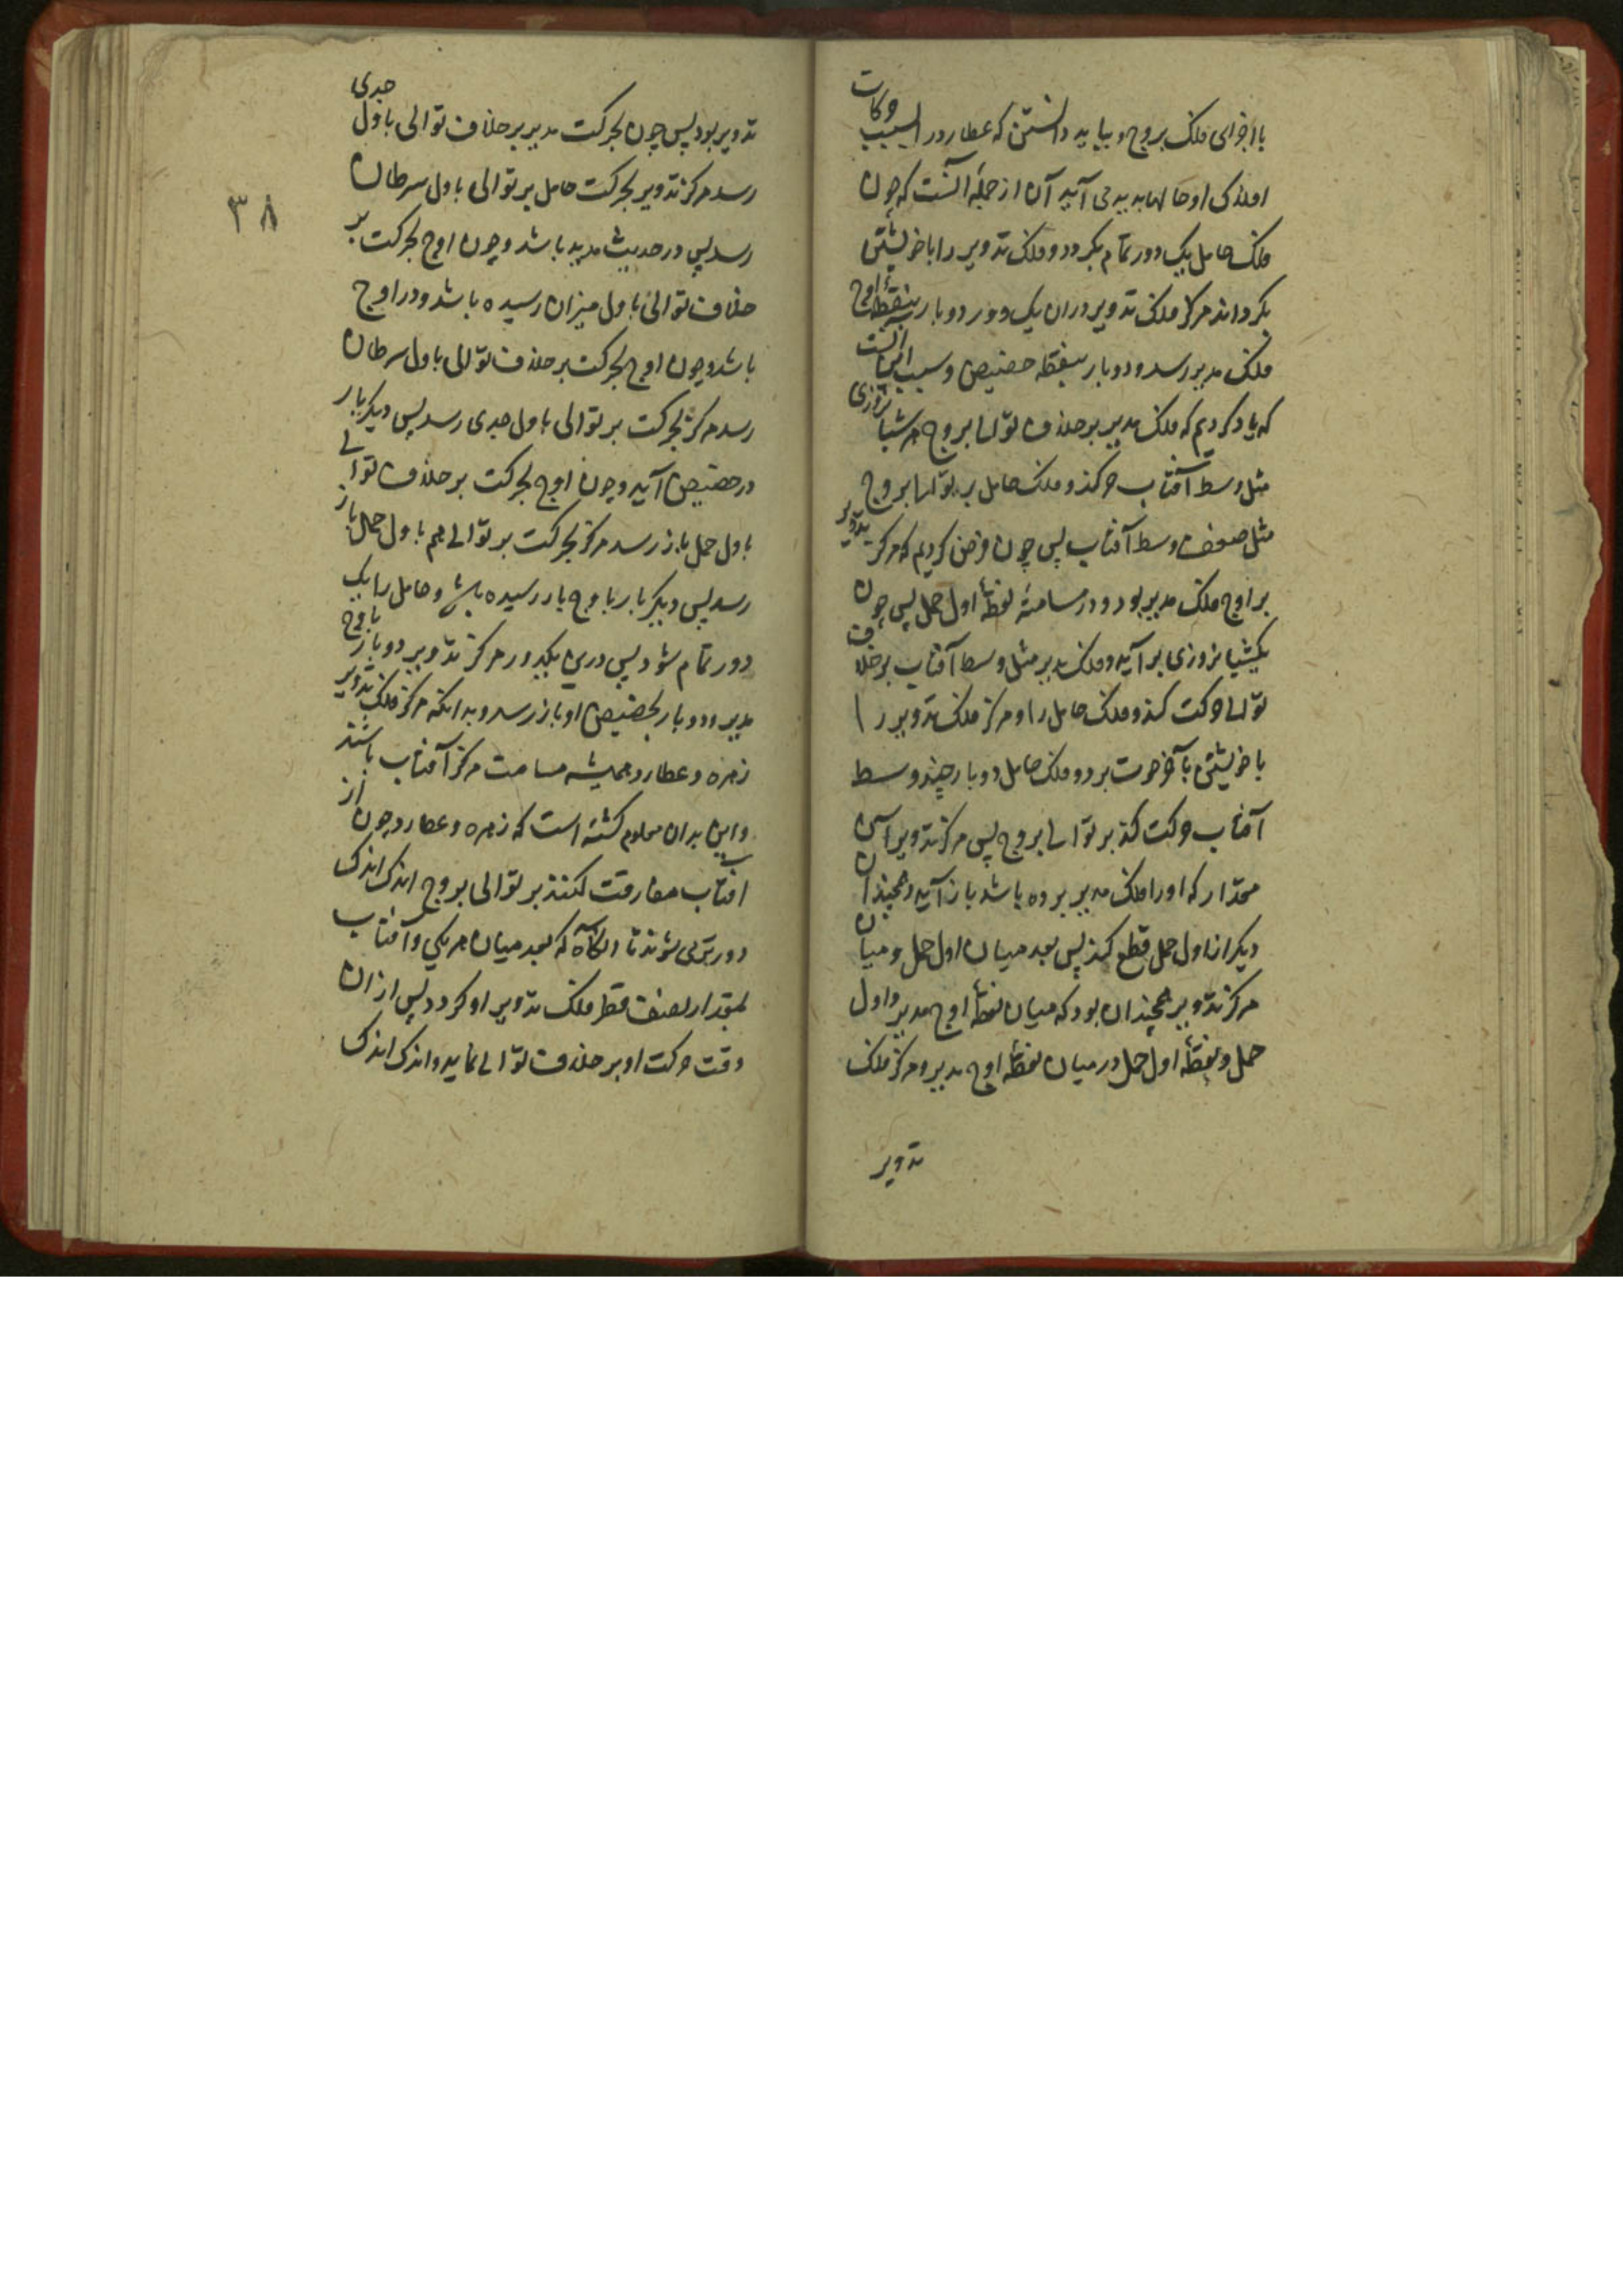 با اجزای فلک بروج و بباید دانستن که عطارد را بسبب حرکات
افلاک او حالها بدید می آید آن از جمله آنست که چون
فلک حامل یک دور تمام بکردد و فلک تدویر را با خویشتن
بکرداند مرکز فلک تدویر دران یک دور دو بار بنقطهٔ اوج
فلک مدیر رسد و دو بار بنقطه حضیض و سبب این آنست
که یاد کردیم که فلک مدیر بر خلاف توالی بروج هر شباروزی
مثل وسط آفتاب حرکت کند و فلک حامل بر توالی بروج
مثل ضعف وسط آفتاب پس چون فرض کردیم که مرکز تدویر
بر اوج فلک مدیر بود و در مسامتهٔ نقطهٔ اول حمل پس چون
یکشباروزی برآید و فلک مدیر مثل وسط آفتاب بر خلاف
توالی حرکت کند و فلک حامل را و مرکز فلک تدویر را
با خویشتن بآخر حوت برد و فلک حامل دو بار چند وسط
آفتاب حرکت کند بر توالی بروج پس مرکز تدویر آن
مقدار که او را فلک مدیر برده باشد باز آید و همچندان
دیکر از اول حمل قطع کند پس بعد میان اول حمل و میان
مرکز تدویر همچندان بود که میان نقطهٔ اوج مدیر و اول
حمل و نقطهٔ اول حمل در میان نقطهٔ اوج مدیر و مرکز فلک
تدویر
۳۸
تدویر بود پس چون بحرکت مدیر بر خلاف توالی باول جدی
رسد مرکز تدویر بحرکت حامل بر توالی باول سرطان
رسد پس در حضیض مدیر باشد و چون اوج بحرکت بر
خلاف توالی باول میزان رسیده باشد و در اوج
باشد و چون اوج بحرکت بر خلاف توالی باول سرطان
رسد مرکز بحرکت بر توالی باول جدی رسد پس دیکر بار
در حضیض آید و چون اوج بحرکت بر خلاف توالی
باول حمل باز رسد مرکز بحرکت بر توالی هم باول حمل باز
رسد پس دیکر بار باوج باز رسیده باشد و حامل را یک
دور تمام شود پس درین یکدور مرکز تدویر دو بار باوج
مدیر و دو بار بحضیض او باز رسد و بدانکه مرکز فلک تدویر
زهره و عطارد همیشه مسامت مرکز آفتاب باشند
و این بدان معلوم کشته است که زهره و عطارد چون از
افتاب مفارقت کنند بر توالی بروج اندک اندک
دورتر می شوند تا آنکاه که بعد میان هر یکی و آفتاب
بمقدار نصف قطر فلک تدویر او کردد پس ازان
وقت حرکت او بر خلاف توالی نماید و اندک اندک